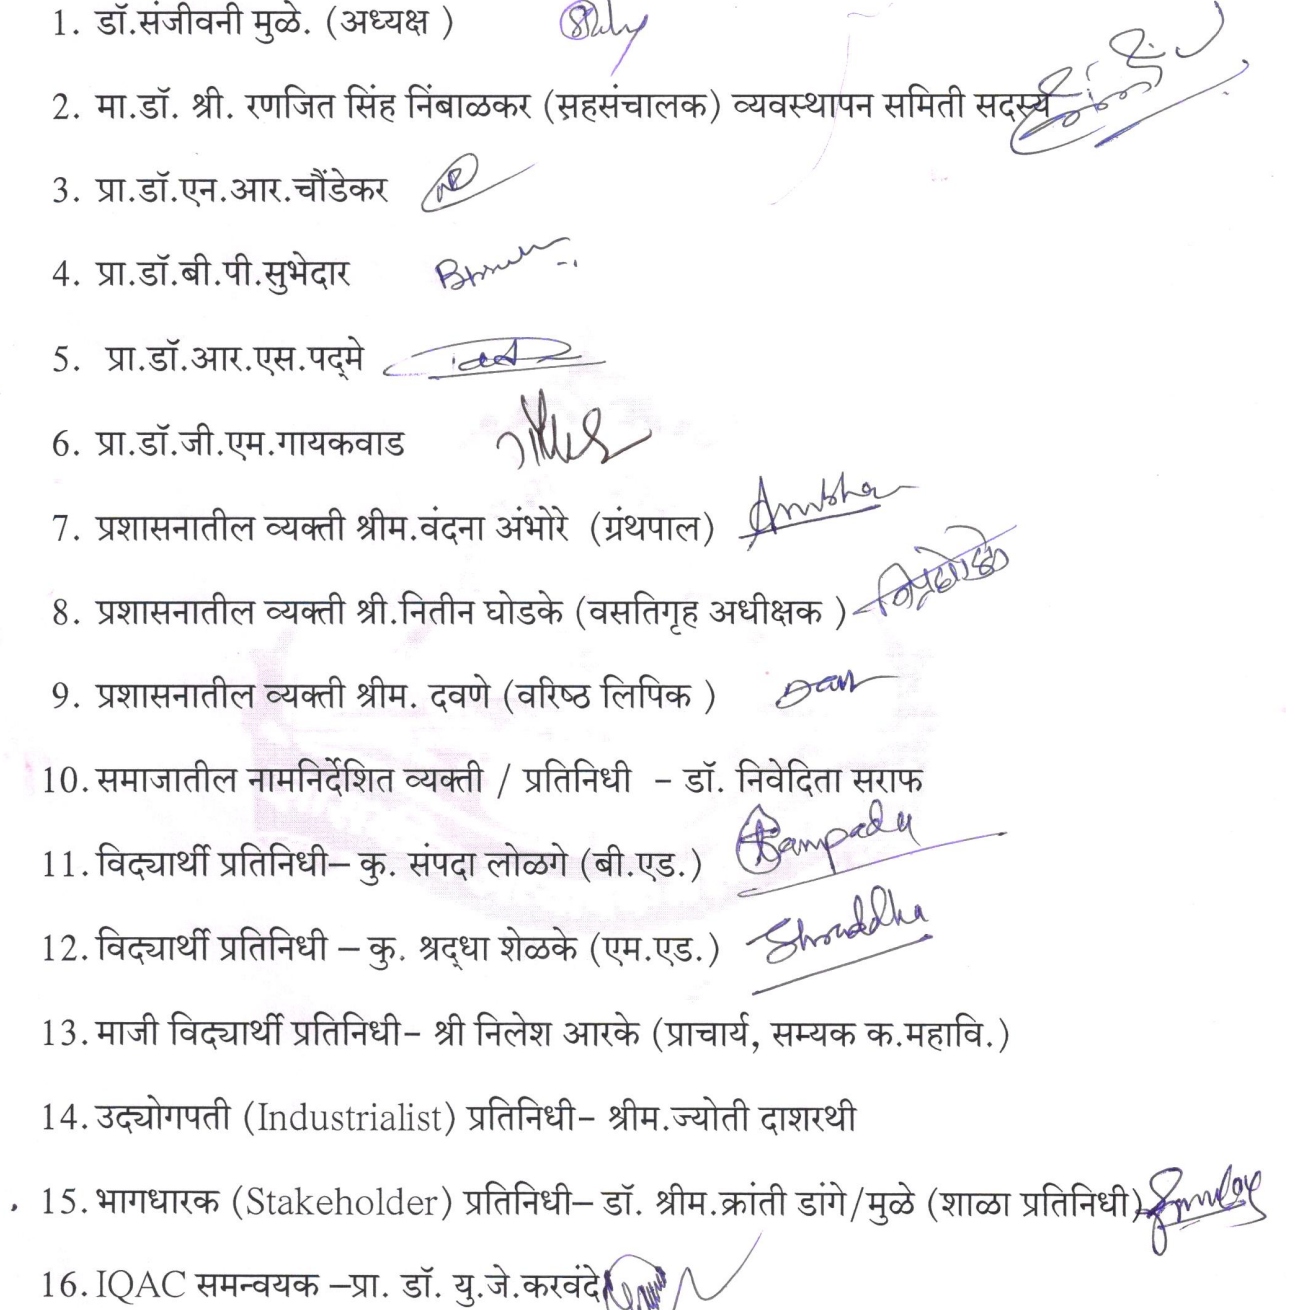 1. डॉ.संजीवनी मुळे. (अध्यक्ष )
2. मा.डॉ. श्री. रणजित सिंह निंबाळकर (स्रहसंचालक) व्यवस्थापन समिती सदस्य
3. प्रा.डॉ.एन.आर.चौंडेकर
4. प्रा.डॉ.बी.पी.सुभेदार
5. प्रा.डॉ.आर.एस.पद्मे
6. प्रा.डॉ.जी.एम.गायकवाड
7. प्रशासनातील व्यक्ती श्रीम.वंदना अंभोरे (ग्रंथपाल)
8. प्रशासनातील व्यक्ती श्री.नितीन घोडके (वसतिगृह अधीक्षक )
9. प्रशासनातील व्यक्ती श्रीम. दवणे (वरिष्ठ लिपिक )
10. समाजातील नामनिर्देशित व्यक्ती / प्रतिनिधी - डॉ. निवेदिता सराफ
11. विद्यार्थी प्रतिनिधी– कु. संपदा लोळगे (बी.एड.) Sampada
12. विद्यार्थी प्रतिनिधी – कु. श्रद्धा शेळके (एम.एड.) Shraddha
13. माजी विद्यार्थी प्रतिनिधी- श्री निलेश आरके (प्राचार्य, सम्यक क.महावि.)
14. उद्योगपती (Industrialist) प्रतिनिधी- श्रीम.ज्योती दाशरथी
15. भागधारक (Stakeholder) प्रतिनिधी– डॉ. श्रीम.क्रांती डांगे/मुळे (शाळा प्रतिनिधी)
16. IQAC समन्वयक –प्रा. डॉ. यु.जे.करवंदे